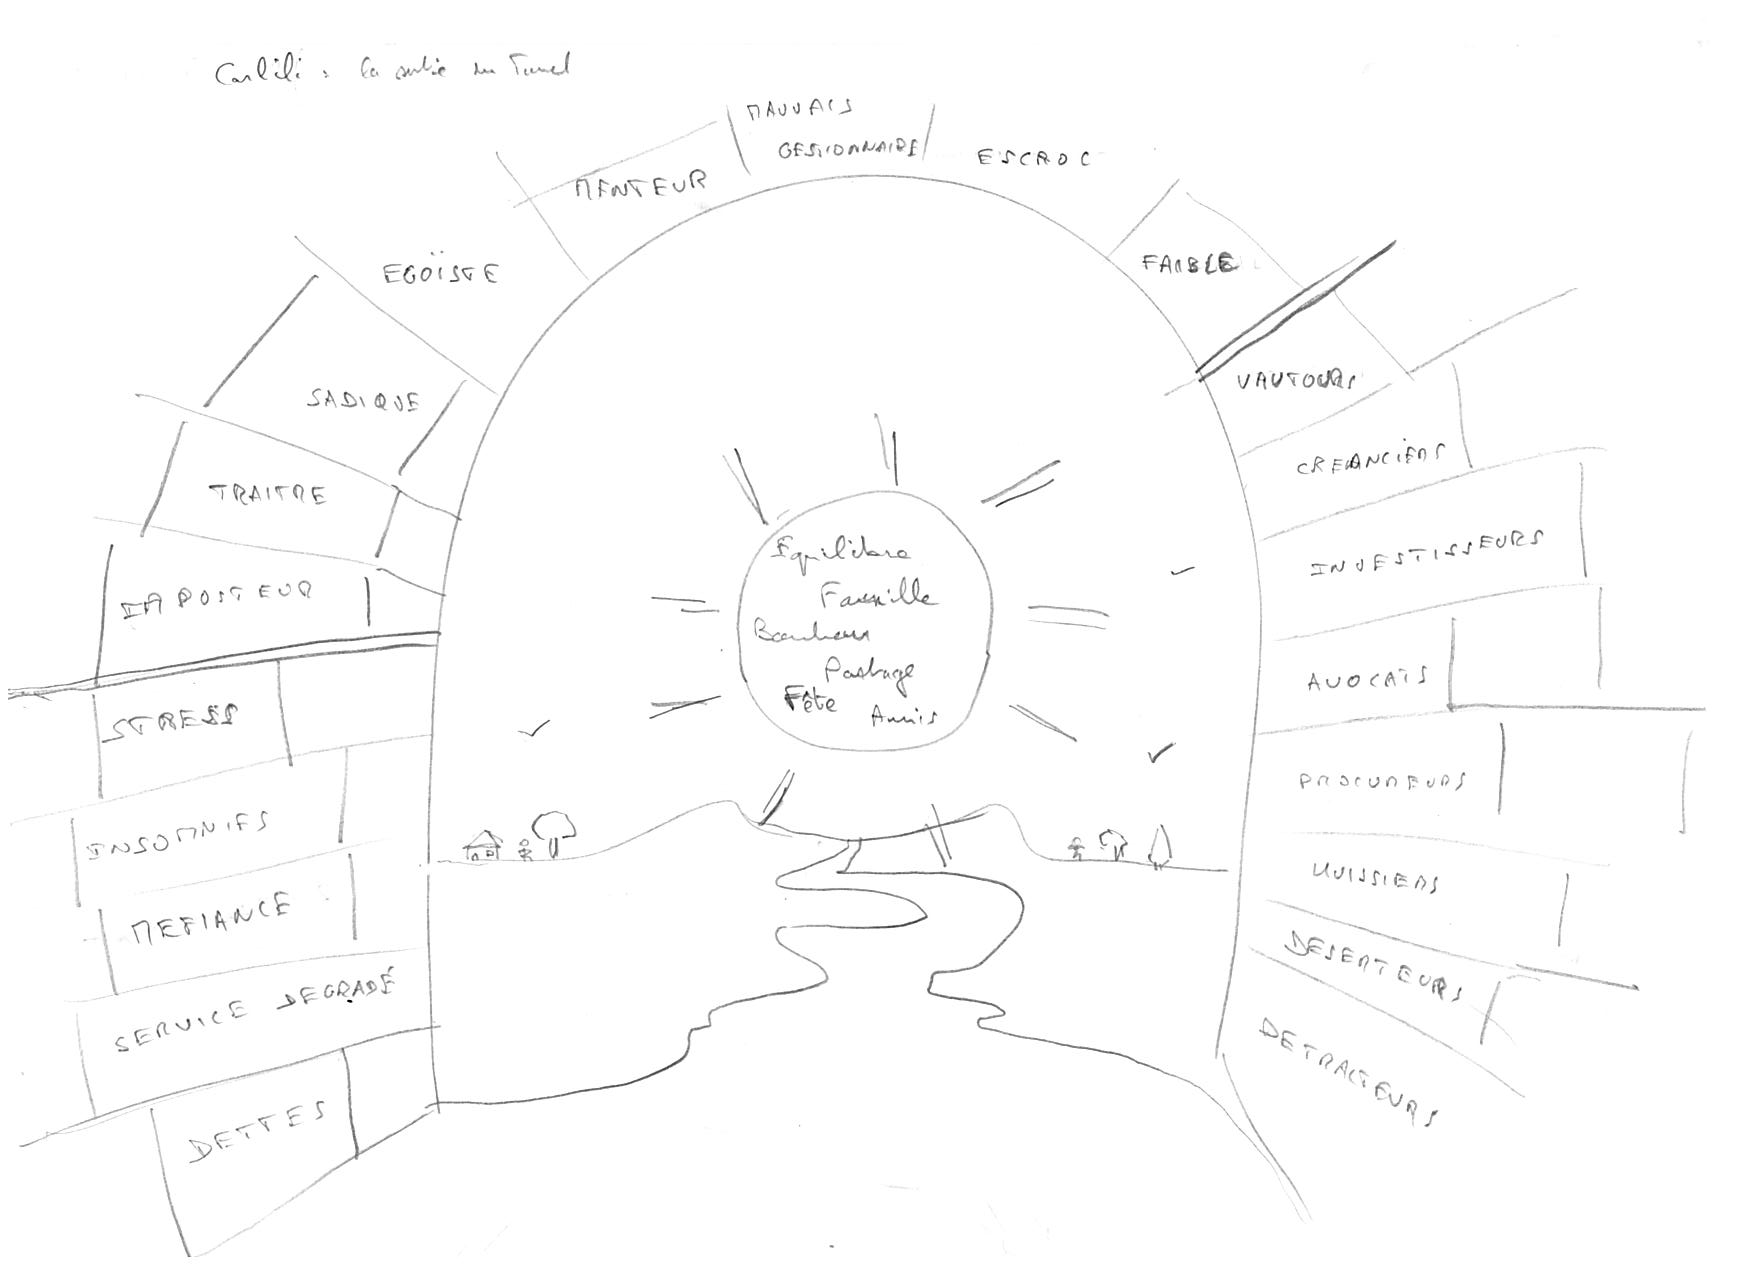 la sortie du Tunnel
MAUVAIS
GESTIONNAIRE
ESCROC
MENTEUR
FAIBLE
EGOÏSTE
VAUTOURS
SADIQUE
CREANCIERS
TRAITRE
INVESTISSEURS
IMPOSTEUR
AVOCATS
STRESS
PROCUREURS
INSOMNIES
HUISSIERS
MEFIANCE
DESERTEURS
SERVICE DEGRADÉ
DETRACTEURS
DETTES
Equilibre
Famille
Bonheur
Partage
Fête
Amis